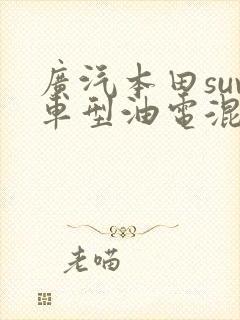 廣汽本田suv
車型油電混
老喵